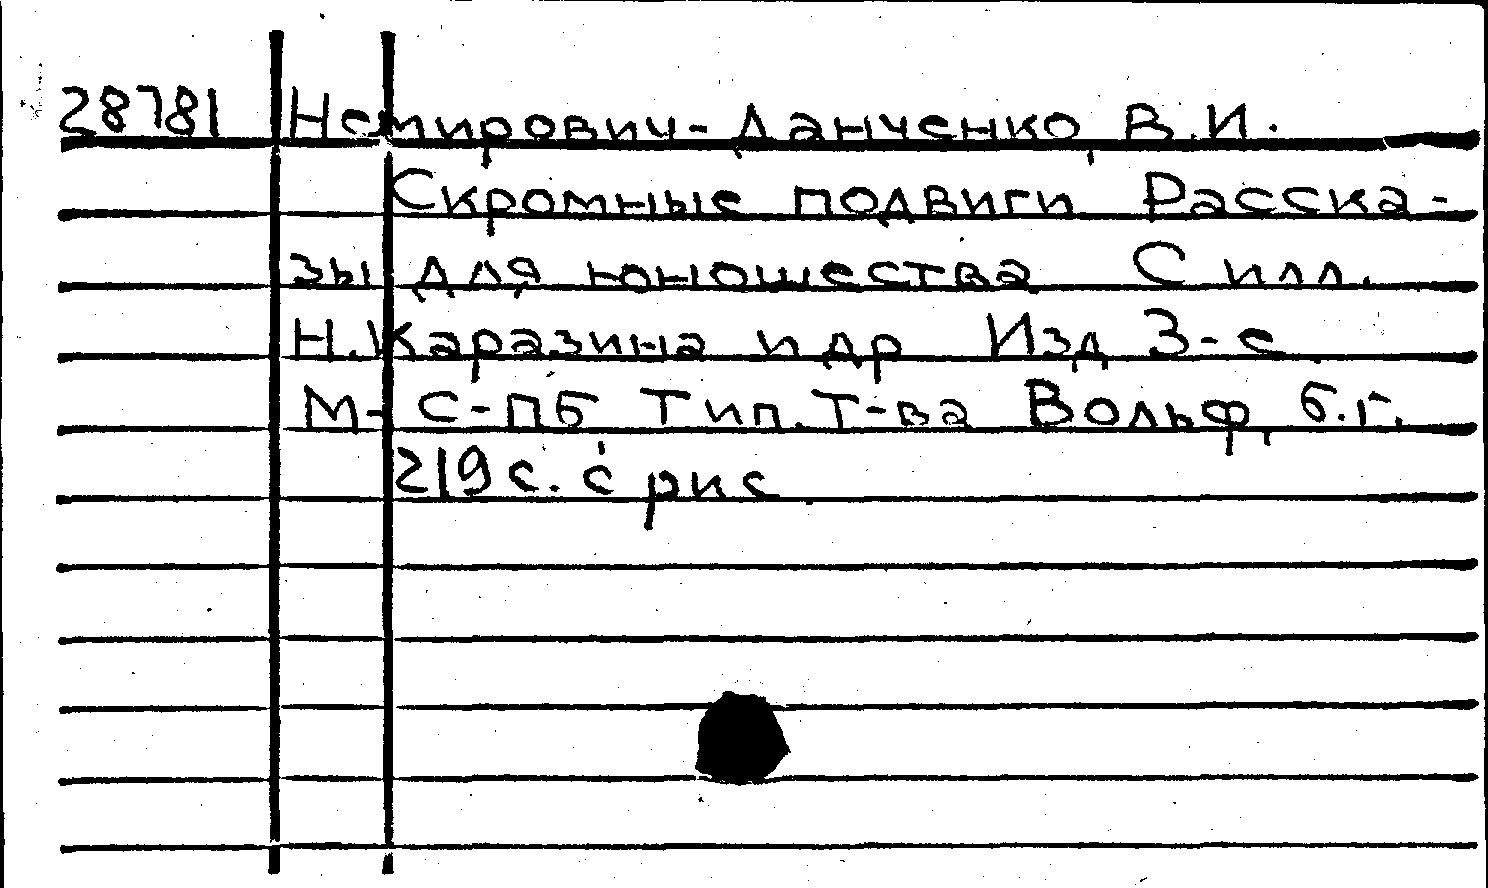 28781 Немирович-Данченко, В.И.
Скромные подвиги. Расска-
зы для юношества С илл.
Н.Каразина и др Изд 3-е.
М-С-ПБ Тип.Т-ва Вольф, б.г.
219с. с рис.